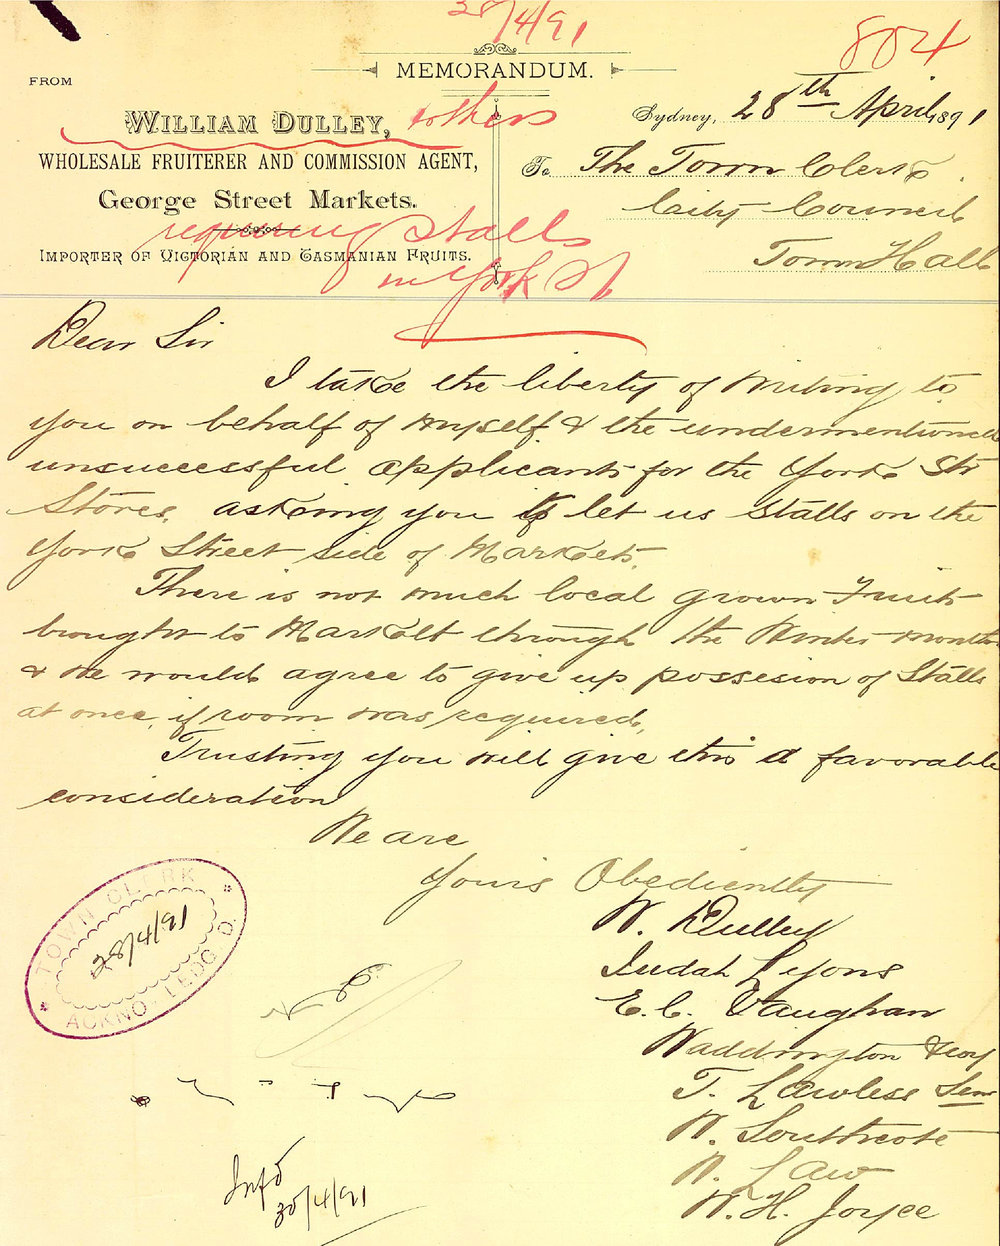 28/4/91
804
MEMORANDUM.
FROM
WILLIAM DULLEY, & others
WHOLESALE FRUITERER AND COMMISSION AGENT,
George Street Markets.
requiring stalls
IMPORTER OF VICTORIAN AND TASMANIAN FRUITS.
in York St
Sydney, 28th April 1891
To The Town Clerk
City Council
Town Hall
Dear Sir
I take the liberty of writing to
you on behalf of myself & the undermentioned
unsuccessful applicants for the York Str
Stores, asking you to let us Stalls on the
York Street side of Markets.
There is not much local grown Fruits
brought to Market through the Winter months
& we would agree to give up possesion of Stalls
at once, if room was required,
Trusting you will give this a favorable
consideration
We are
Yours Obediently
W. Dulley
Judah Lyons
E. C. Vaughan
Waddington & Coy
T. Lawless Senr
W. Southcote
W. Law
W. H. Joyce
TOWN CLERK
28/4/91
ACKNO-LEDG-D.
Infd
30/4/91